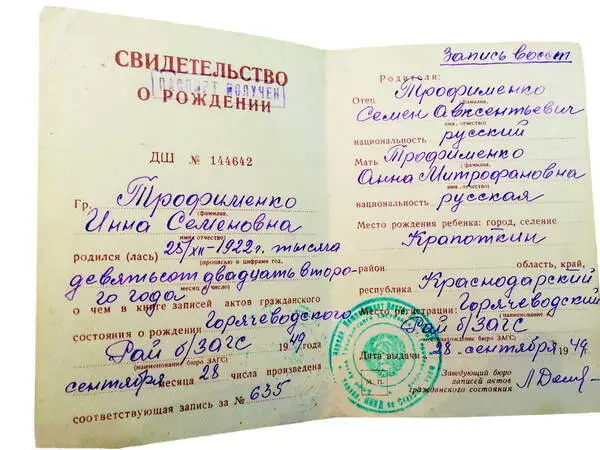 СВИДЕТЕЛЬСТВО
ПАСПОРТ ПОЛУЧЕН
О РОЖДЕНИИ
ДШ № 144642
Гр. Трофименко
(фамилия,
Инна Семеновна
имя отчество)
родился (лась) 28/XII-1922 г. тысяча
(прописью и цифрами год,
девятьсот двадцать второ-
месяц и число)
го года
о чем в книге записей актов гражданского
состояния о рождении Горячеводского
Рай б/ЗАГС 1949 г.
(наименование бюро ЗАГС)
сентября месяца 28 числа произведена
соответствующая запись за № 635
Запись восст
Родители:
Отец Трофименко
(фамилия,
Семен Авксентьевич
имя, отчество)
национальность русский
Мать Трофименко
(фамилия,
Анна Митрофановна
имя, отчество)
национальность русская
Место рождения ребенка: город, селение
Крапоткин
район область, край,
республика Краснодарский
Место регистрации: Горячеводский
Рай б/ЗАГС
(наименование
бюро ЗАГС)
Дата выдачи 28 сентября 1949 г.
М. П.
Заведующий бюро
записей актов
гражданского состояния